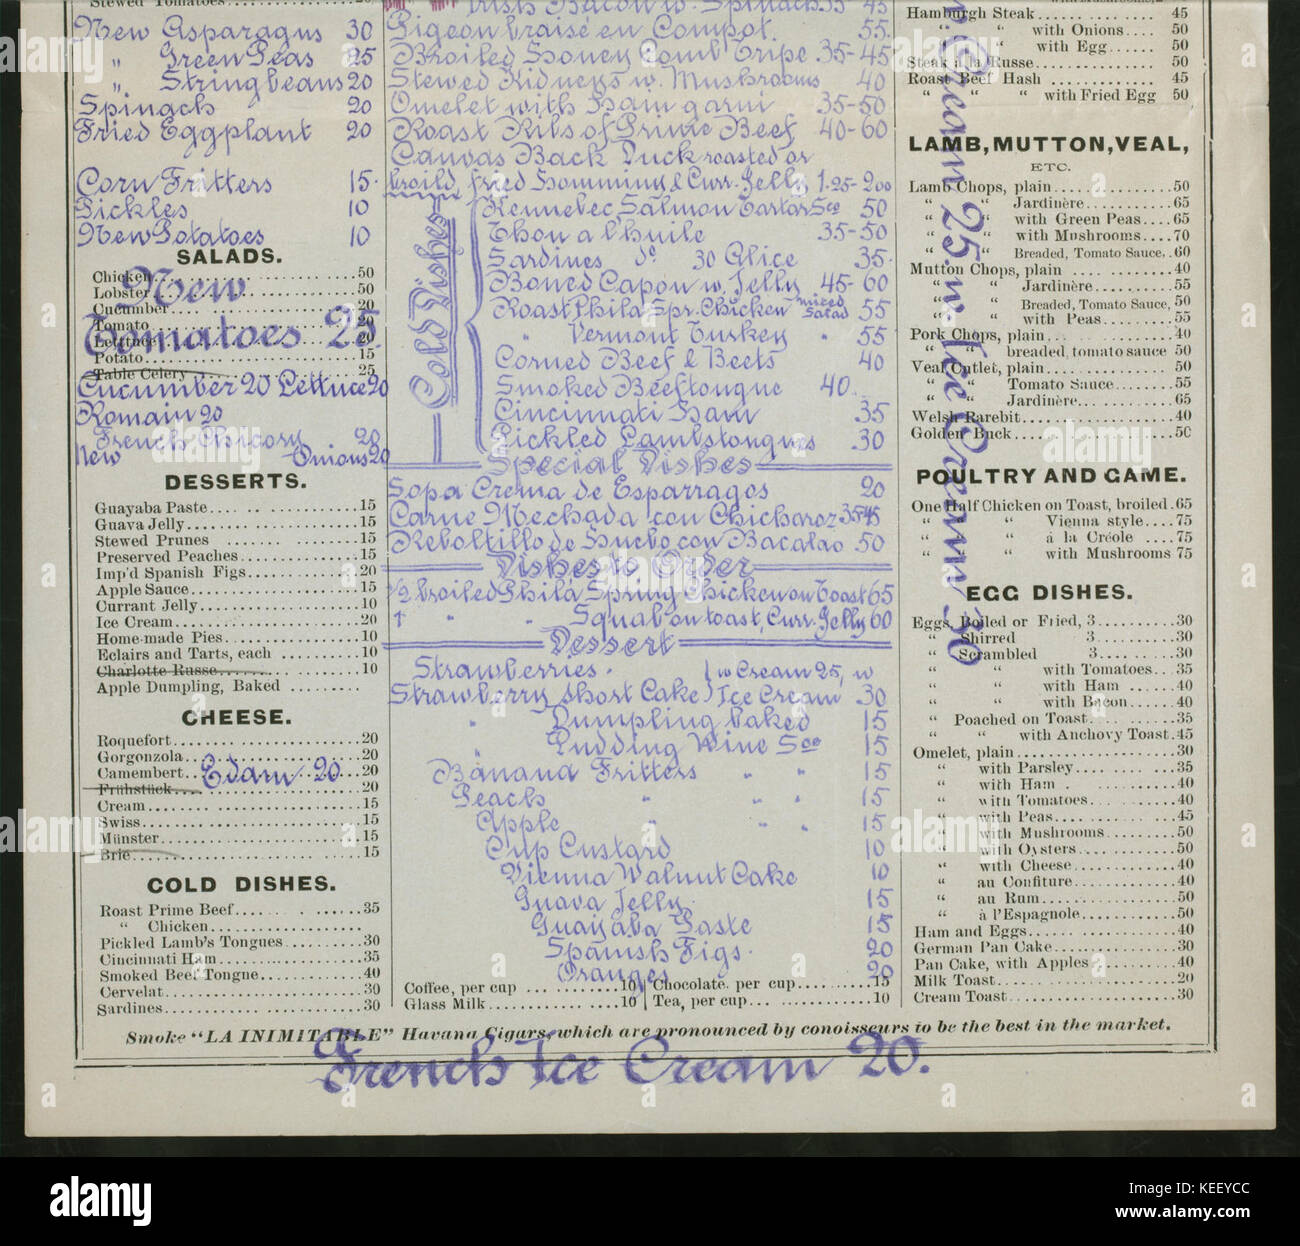 Stewed Tomatoes
New Asparagus 30
„ Green Peas 25
„ Stringbeans 20
Spinach 20
Fried Eggplant 20
Corn Fritters 15
Pickles 10
New Potatoes 10
SALADS.
Chicken 50
Lobster 50
New
Cucumber 20
Tomato 20
Tomatoes 25.
Lettuce 20
Potato 15
Table Celery 25
Cucumber 20 Lettuce 20
Romain 20
French Chicory 20
New Onions 20
DESSERTS.
Guayaba Paste 15
Guava Jelly 15
Stewed Prunes 15
Preserved Peaches 15
Imp'd Spanish Figs 20
Apple Sauce 15
Currant Jelly 10
Ice Cream 20
Home-made Pies 10
Eclairs and Tarts, each 10
Charlotte Russe 10
Apple Dumpling, Baked
CHEESE.
Roquefort 20
Gorgonzola 20
Camembert 20
Edam 20
Frühstück 20
Cream 15
Swiss 15
Münster 15
Brie 15
COLD DISHES.
Roast Prime Beef 35
“ Chicken
Pickled Lamb's Tongues 30
Cincinnati Ham 35
Smoked Beef Tongue 40
Cervelat 30
Sardines 30
Irish Bacon w. Spinach 35 45
Pigeon braisé en Compot. 55.
Broiled Honey Comb Tripe 35-45
Stewed Kidneys w. Mushrooms 40
Omelet with Ham garni 35-50
Roast Ribs of Prime Beef 40-60
Canvas Back Duck roasted or
broild, fried Homming & Curr. Jelly 1.25-2.00
Cold Dishes
Kennebec Salmon Tartar Sce 50
Thon a l'huile 35-50
Sardines do 30 Alice 35.
Boned Capon w. Jelly 45-60
Roast Phila Spr. Chicken mixed salad 55
„ Vermont Turkey „ 55
Corned Beef & Beets 40
Smoked Beeftongue 40.
Cincinnati Ham 35
Pickled Lambstongues .30
Special Dishes
Sopa Crema de Esparragos 20
Carne Mechada con Chicharoz 35 45
Reboltillo de Huebo con Bacalao .50
Dishes to Order
1/2 broiled Phila Spring Chicken on Toast 65
1 „ „ Squab on toast, Curr. Jelly 60
Dessert
Strawberries. w Cream 25, w
Strawberry Short Cake Ice Cream 30
„ Dumpling baked 15
„ Pudding Wine Sce 15
Banana Fritters „ „ 15
Peach „ „ 15
Apple „ „ 15
Cup Custard 10
Vienna Walnut Cake 10
Guava Jelly. 15
Guayaba Paste 15
Spanish Figs. 20
Oranges 20
Coffee, per cup 10
Glass Milk 10
Chocolate, per cup 15
Tea, per cup 10
Hamburgh Steak 45
“ “ with Onions 50
“ “ with Egg 50
Steak à la Russe 50
Roast Beef Hash 45
“ “ “ with Fried Egg 50
LAMB, MUTTON, VEAL,
ETC.
Lamb Chops, plain 50
“ “ Jardinère 65
“ “ with Green Peas 65
“ “ with Mushrooms 70
“ “ Breaded, Tomato Sauce 60
Mutton Chops, plain 40
“ “ Jardinère 55
“ “ Breaded, Tomato Sauce, 50
“ “ with Peas 55
Pork Chops, plain 40
“ “ breaded, tomato sauce 50
Veal Cutlet, plain 50
“ “ Tomato Sauce 55
“ “ Jardinère 65
Welsh Rarebit 40
Golden Buck 50
POULTRY AND GAME.
One Half Chicken on Toast, broiled .65
“ “ Vienna style 75
“ “ à la Créole 75
“ “ with Mushrooms 75
EGG DISHES.
Eggs, Boiled or Fried, 3 30
“ Shirred 3 30
“ Scrambled 3 30
“ “ with Tomatoes 35
“ “ with Ham 40
“ “ with Bacon 40
“ Poached on Toast 35
“ “ with Anchovy Toast .45
Omelet, plain 30
“ with Parsley 35
“ with Ham 40
“ with Tomatoes 40
“ with Peas 45
“ with Mushrooms 50
“ with Oysters 50
“ with Cheese 40
“ au Confiture 40
“ au Rum 50
“ à l'Espagnole 50
Ham and Eggs 40
German Pan Cake 30
Pan Cake, with Apples 40
Milk Toast 20
Cream Toast 30
Cream 25. w. Ice Cream 30
Smoke “LA INIMITABLE” Havana Cigars, which are pronounced by conoisseurs to be the best in the market.
French Ice Cream 20.
alamy
Image ID: KEEYCC
www.alamy.com